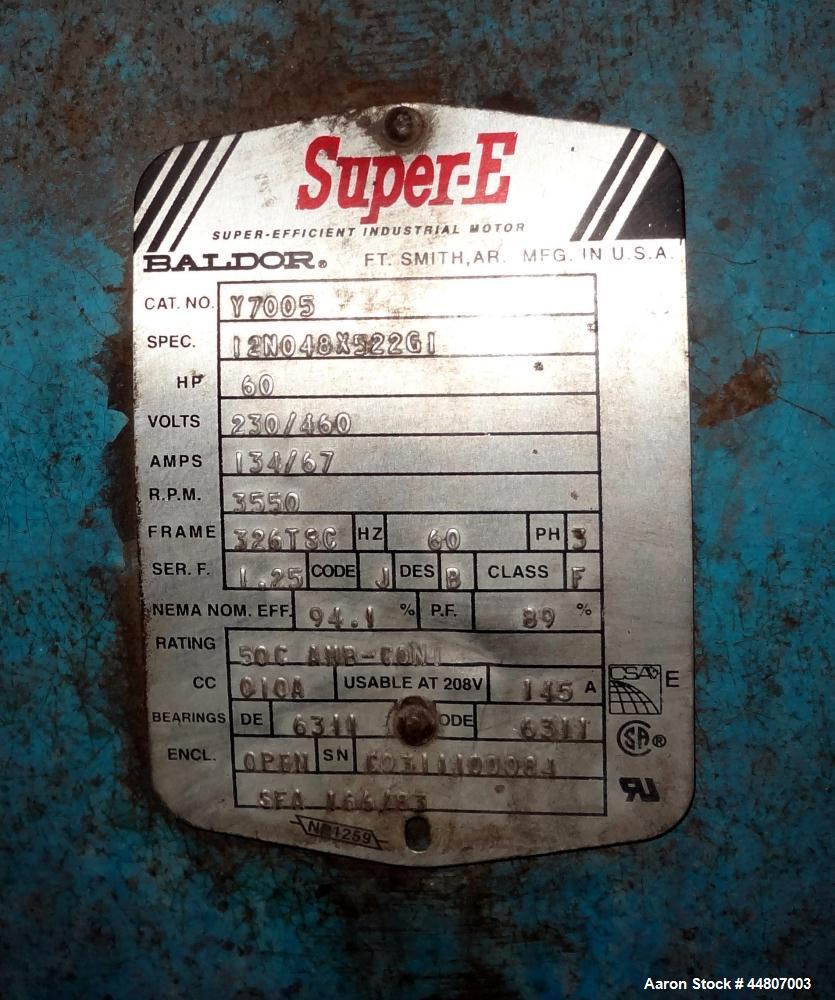 Super-E
SUPER-EFFICIENT INDUSTRIAL MOTOR
BALDOR® FT. SMITH, AR. MFG. IN U.S.A.
CAT. NO. Y7005
SPEC. 12N048X522G1
HP 60
VOLTS 230/460
AMPS 134/67
R.P.M. 3550
FRAME 326TSC HZ 60 PH 3
SER. F. 1.25 CODE J DES B CLASS F
NEMA NOM. EFF. 94.1 % P.F. 89 %
RATING 50C AMB-CONT
CC 010A USABLE AT 208V 145 A
BEARINGS DE 6311 ODE 6311
ENCL. OPEN SN
SFA 166/83
NP1259
CSA E
SA ®
Aaron Stock # 44807003